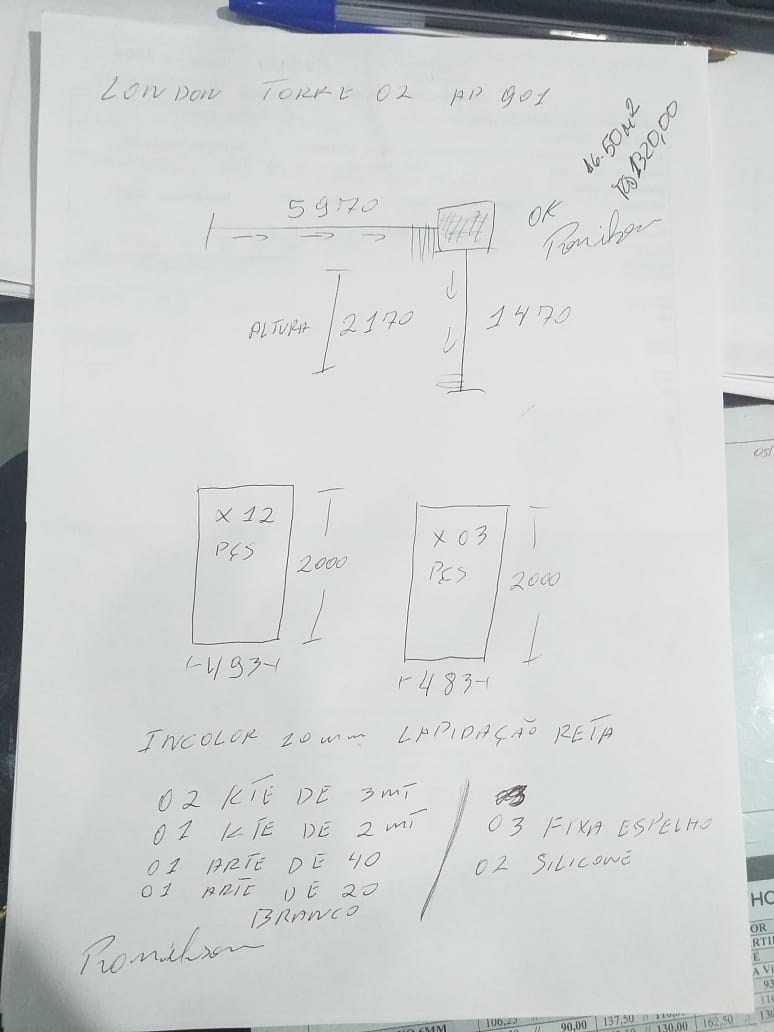 LONDON TORRE 02 AP 901
16.50 M²
R$ 1320,00
5970
OK
Ronilson
ALTURA 2170
1470
X 12
PÇS
2000
493
X 03
PÇS
2000
483
INCOLOR 10mm LAPIDAÇÃO RETA
02 KTE DE 3mT
01 KTE DE 2mT
01 ARTE DE 40
01 ARTE DE 20
BRANCO
03 FIXA ESPELHO
02 SILICONE
Ronilson
106,25 // 90,00 137,50 //
130,00 162,50 //